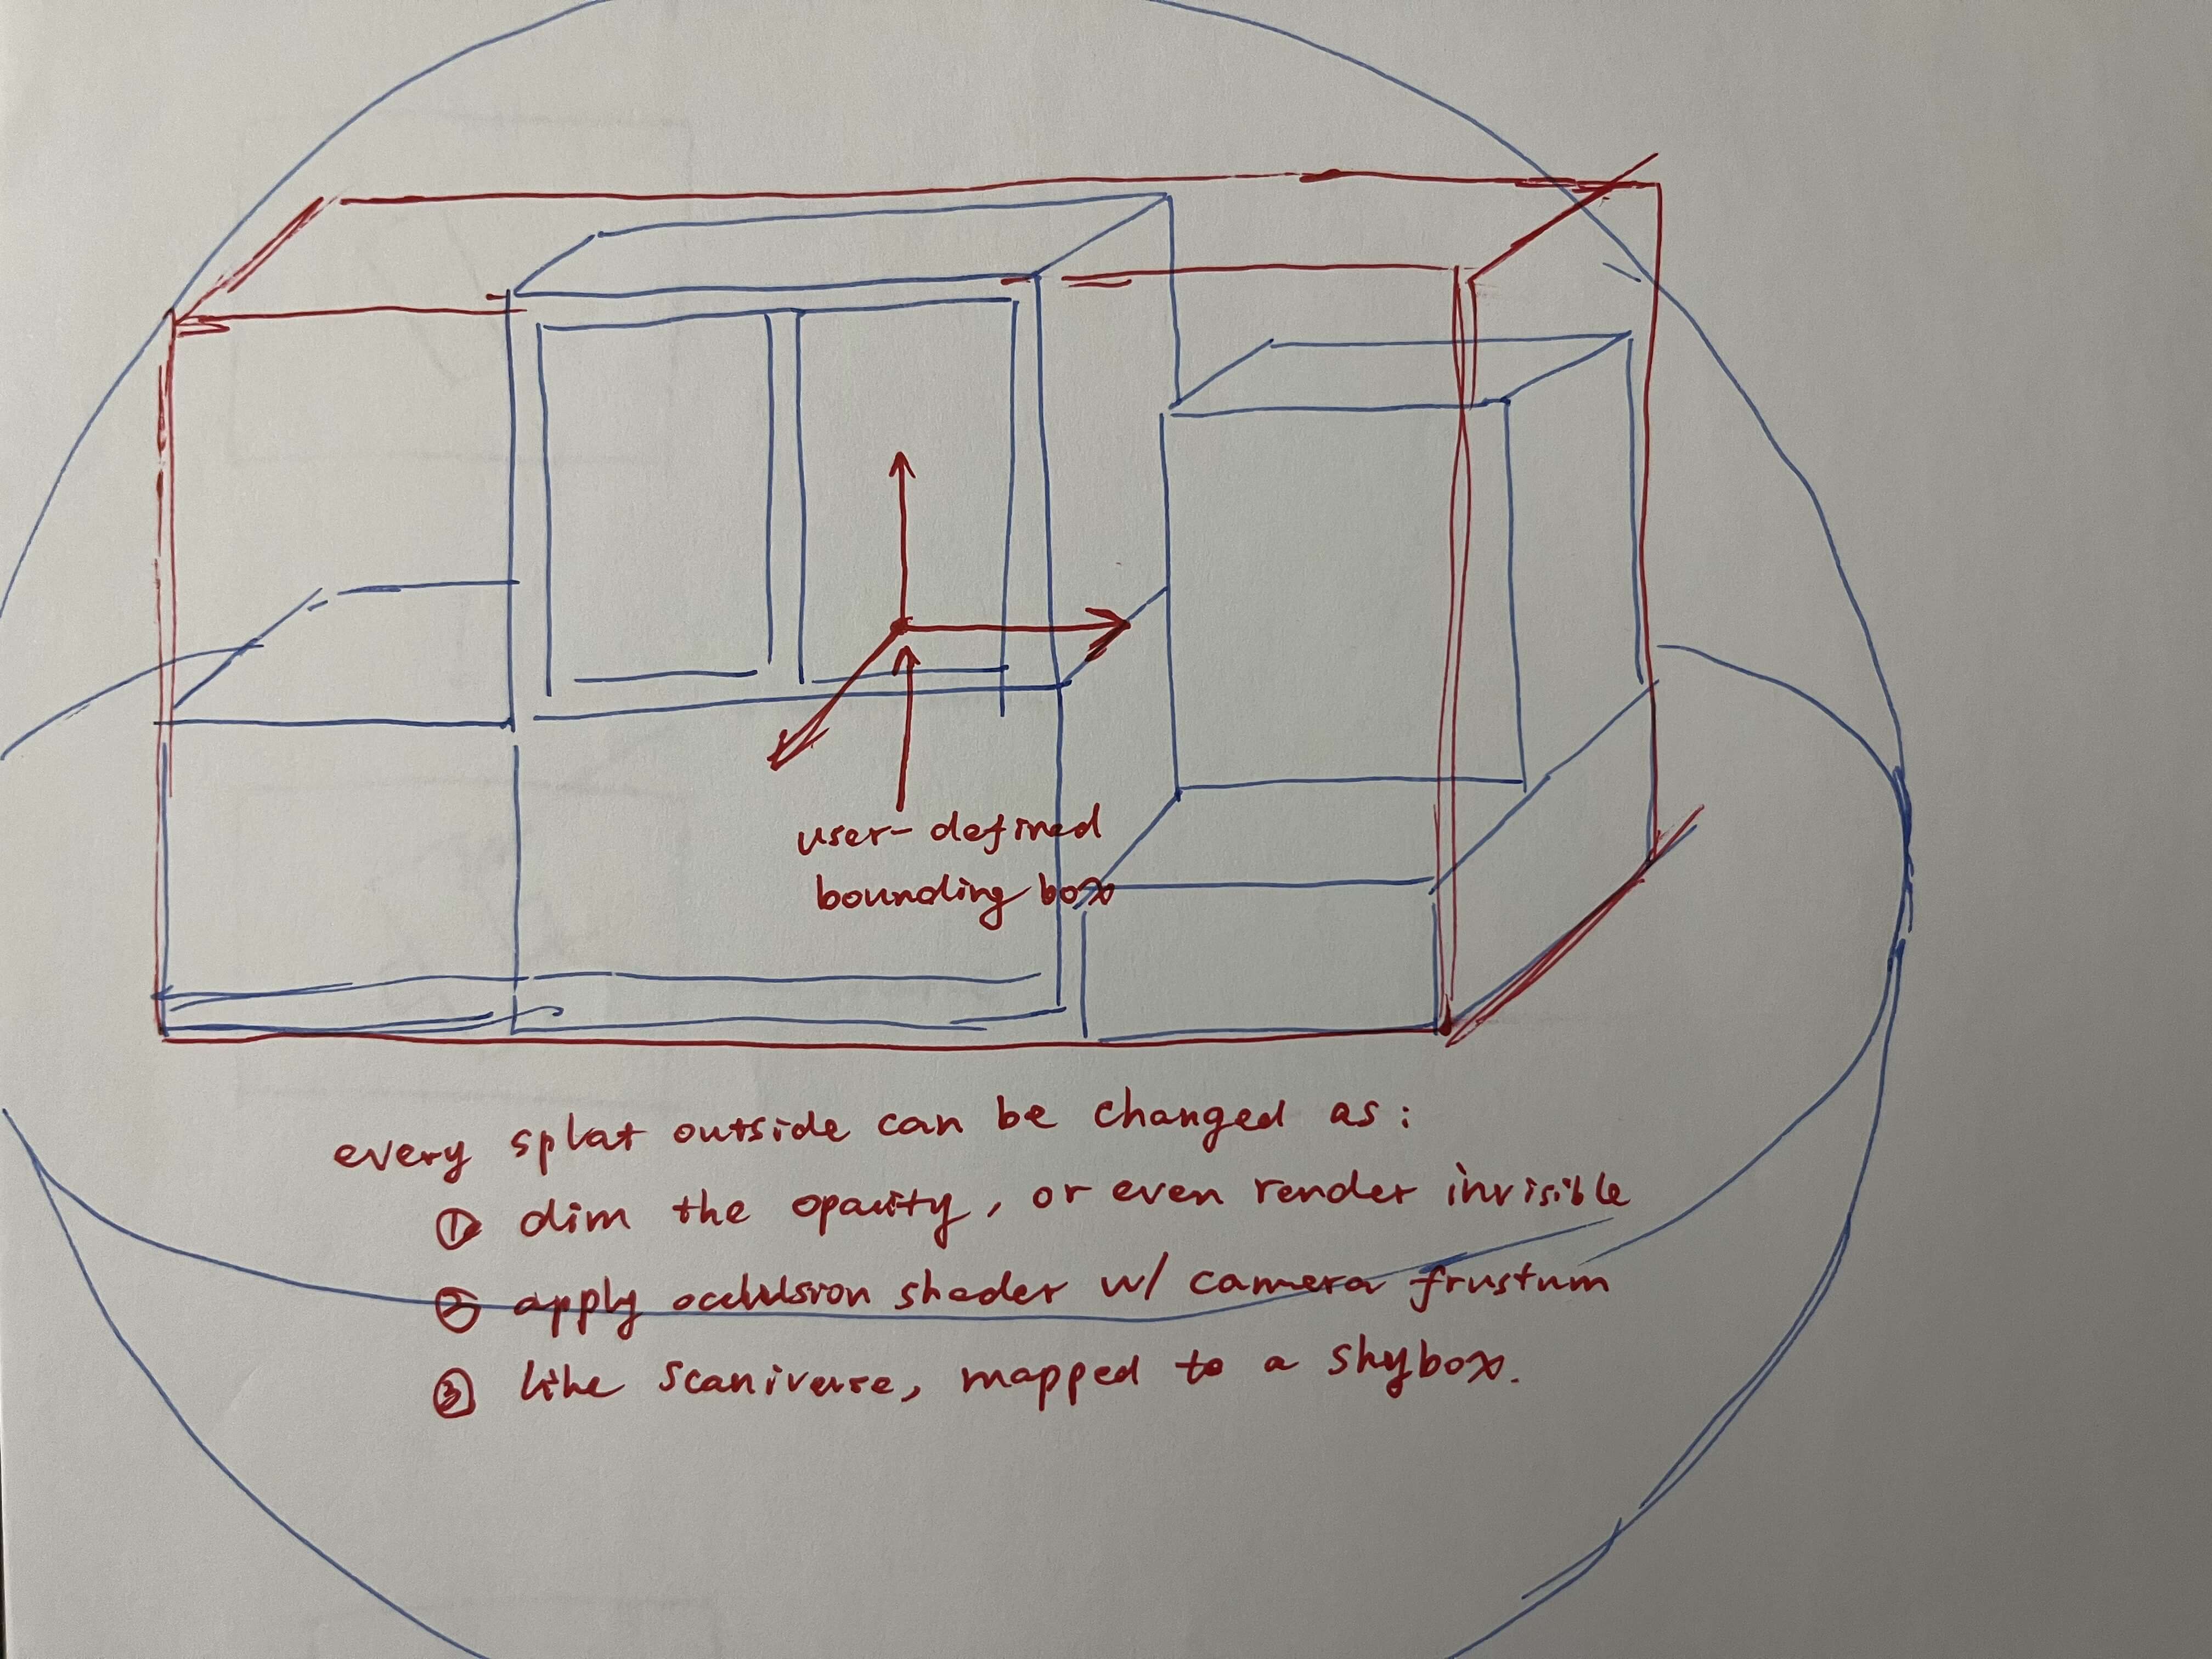 user-defined
bounding box
every splat outside can be changed as:
① dim the opacity, or even render invisible
② apply occlulsion shader w/ camera frustum
③ like scaniverse, mapped to a skybox.